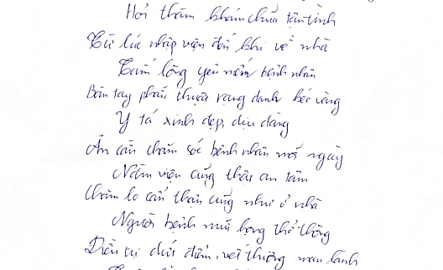 Hỏi thăm khám chữa tận tình
Từ lúc nhập viện đến khi về nhà
Tấm lòng yêu mến bệnh nhân
Bàn tay phẫu thuật vang danh kéo vàng
Y tá xinh đẹp, dịu dàng
Ân cần chăm sóc bệnh nhân mỗi ngày
Nằm viện cũng thấy an tâm
Chăm lo cẩn thận cũng như ở nhà
Người bệnh mũi họng thở thông
Điều trị dứt điểm, vết thương mau lành